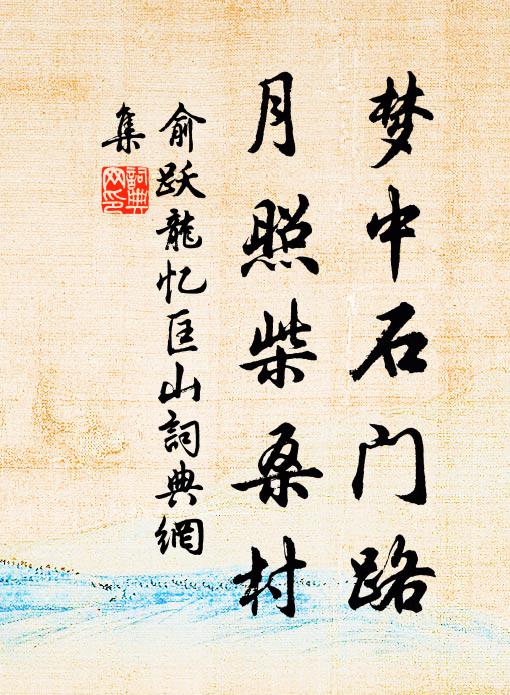 梦中石门路
月照柴桑村
俞跃龍忆匡山詞典網
集
詞典
网印